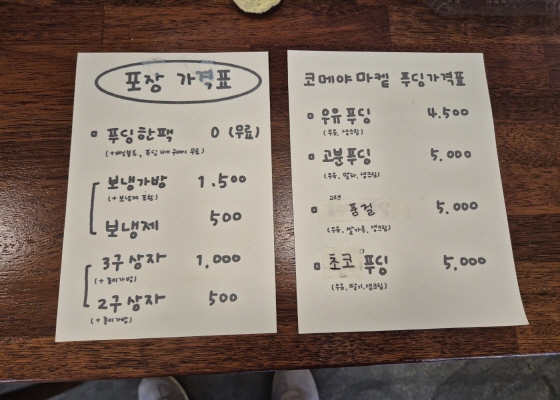 포장 가격표
푸딩한팩 0 (무료)
보냉가방 1.500
(+보냉제 포함)
보냉제 500
3구 상자 1.000
(+종이가방)
2구 상자 500
(+종이가방)
코메야마켙 푸딩가격표
우유푸딩 4.500
(우유, 생크림)
고분푸딩 5.000
(우유, 말차, 생크림)
풍걸 5.000
(우유, 쌀가루, 생크림)
초코 푸딩 5.000
(우유, 딸기, 생크림)